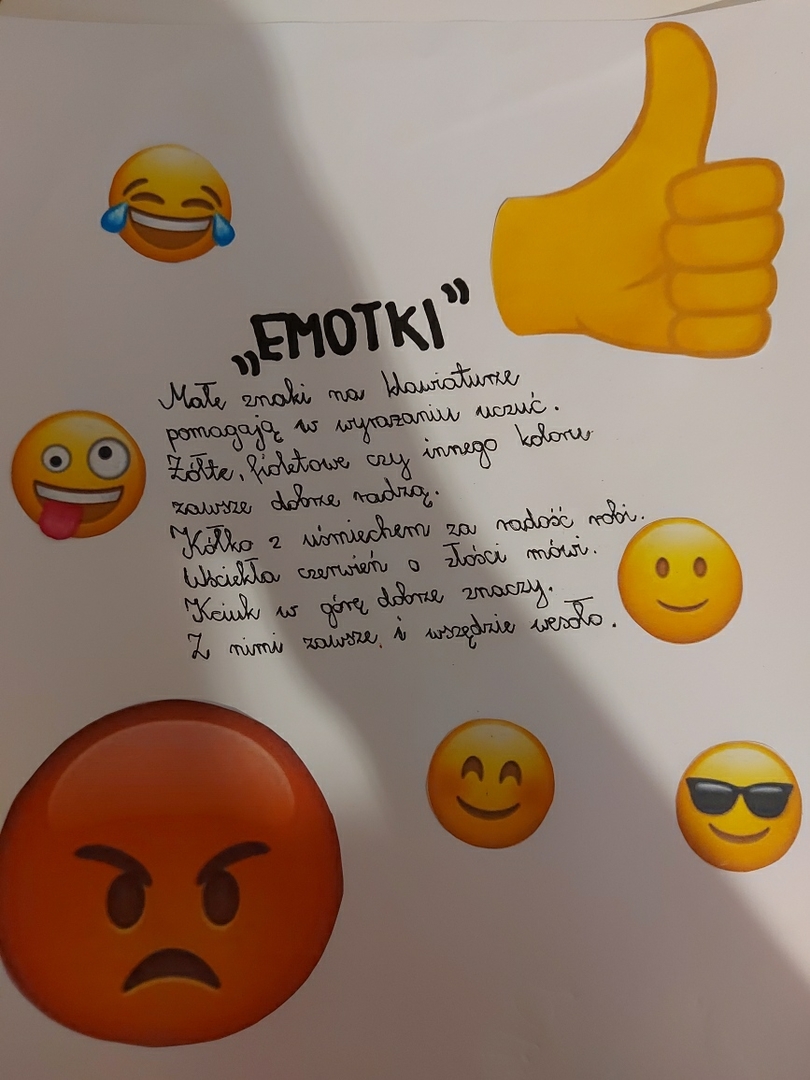 „EMOTKI”
Małe znaki na klawiaturze
pomagają w wyrażaniu uczuć.
Żółte, fioletowe czy innego koloru
zawsze dobrze radzą.
Kółko z uśmiechem za radość robi.
Wściekła czerwień o złości mówi.
Kciuk w górę dobrze znaczy.
Z nimi zawsze i wszędzie wesoło.